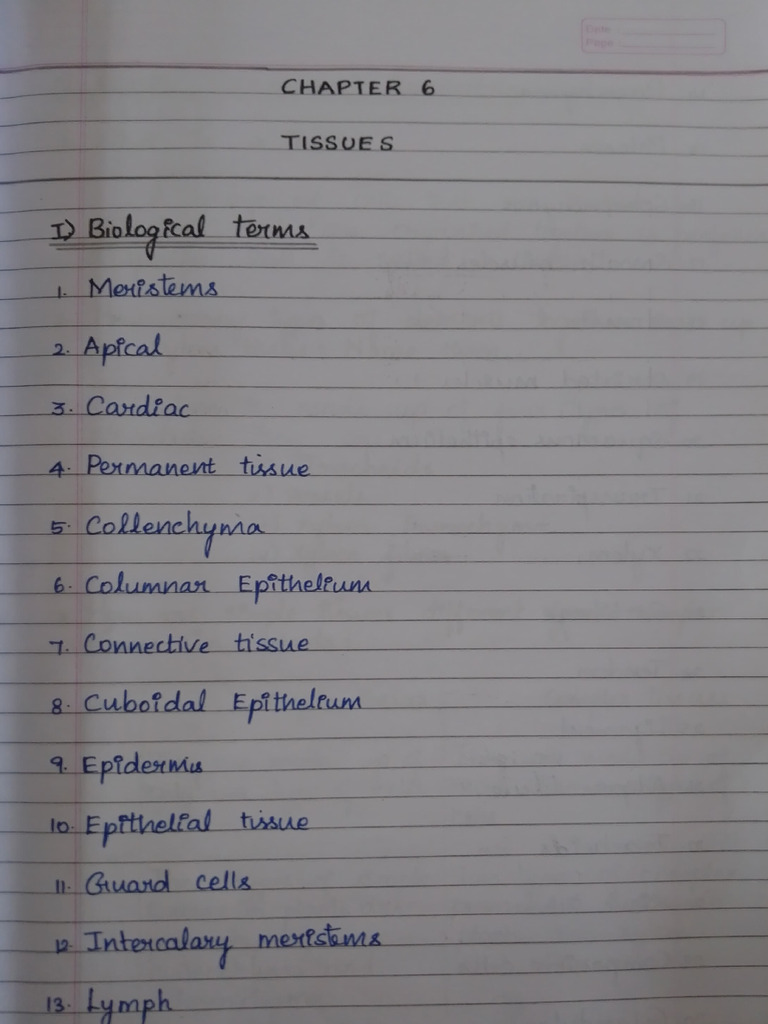 Date
Page
CHAPTER 6
TISSUES
I) Biological terms
1. Meristems
2. Apical
3. Cardiac
4. Permanent tissue
5. Collenchyma
6. Columnar Epithelium
7. Connective tissue
8. Cuboidal Epithelium
9. Epidermis
10. Epithelial tissue
11. Guard cells
12. Intercalary meristems
13. Lymph